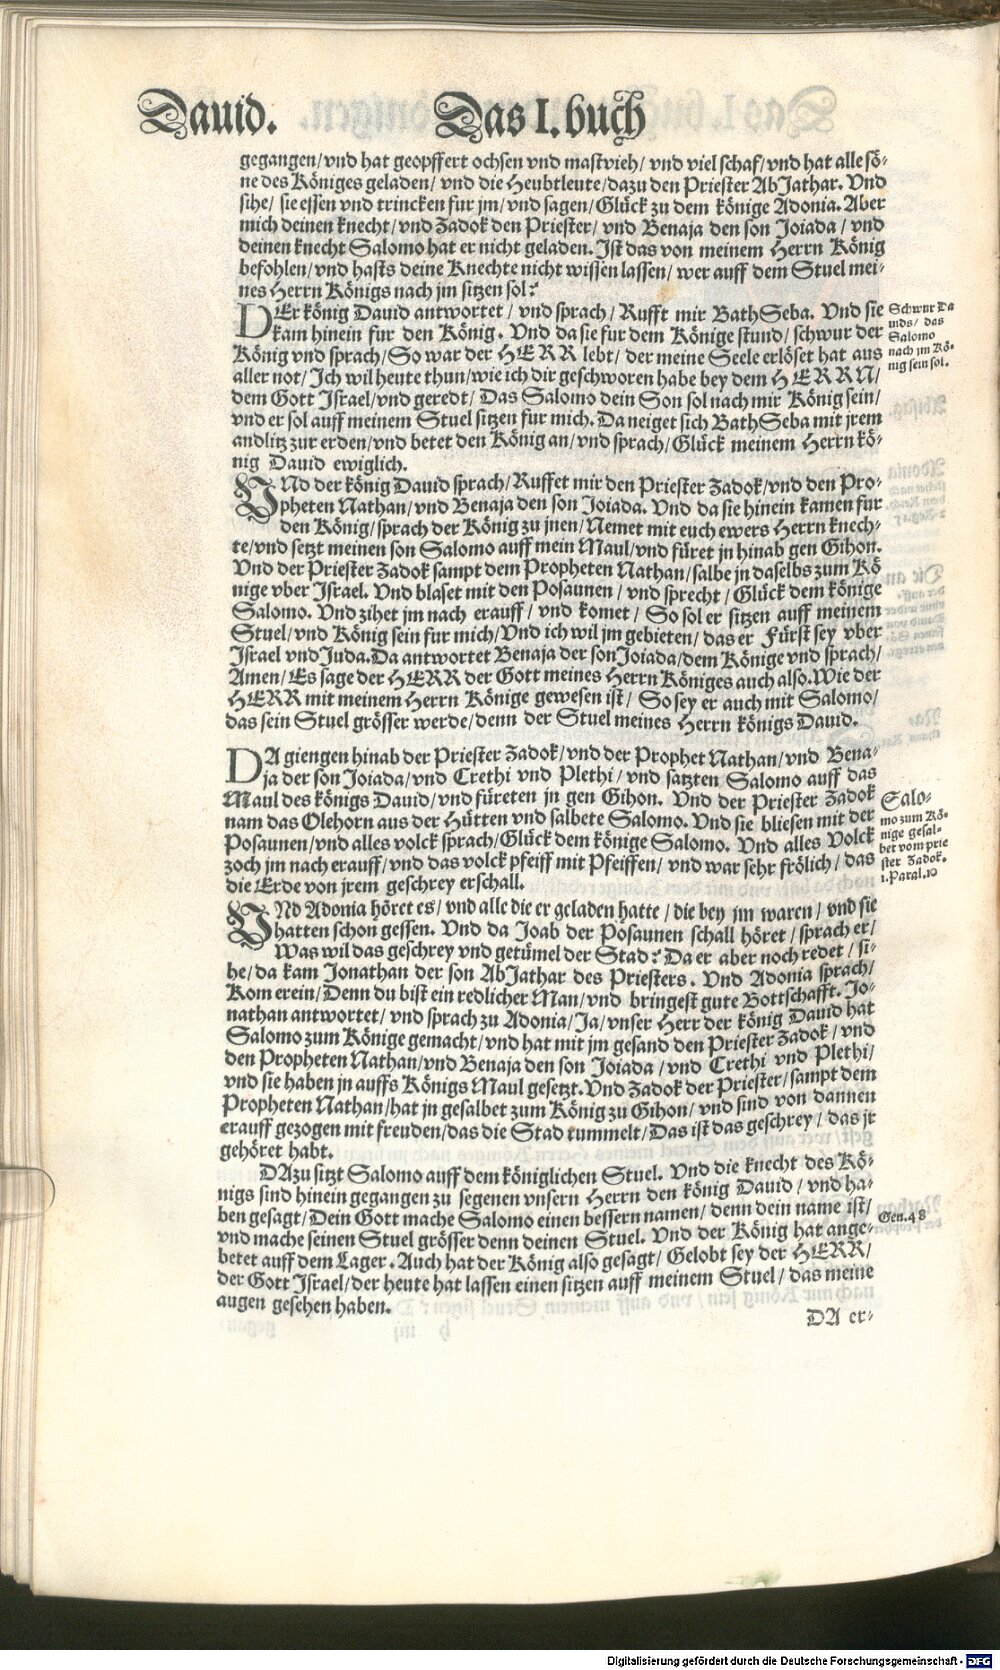 Dauid. Das I. buch
gegangen/ vnd hat geopffert ochsen vnd mastvieh/ vnd viel schaf/ vnd hat alle sö⸗
ne des Königes geladen/ vnd die Heubtleute/ dazu den Priester AbJathar. Vnd
sihe/ sie essen vnd trincken fur jm/ vnd sagen/ Glück zu dem könige Adonia. Aber
mich deinen knecht/ vnd Zadok den Priester/ vnd Benaja den son Joiada/ vnd
deinen knecht Salomo hat er nicht geladen. Ist das von meinem Herrn König
befohlen/ vnd hasts deine Knechte nicht wissen lassen/ wer auff dem Stuel mei⸗
nes Herrn Königs nach jm sitzen sol?
DEr könig Dauid antwortet/ vnd sprach/ Rufft mir BathSeba. Vnd sie
kam hinein fur den König. Vnd da sie fur dem Könige stund/ schwur der
König vnd sprach/ So war der HERR lebt/ der meine Seele erlöset hat aus
aller not/ Ich wil heute thun/ wie ich dir geschworen habe bey dem HERRN/
dem Gott Israel/ vnd geredt/ Das Salomo dein Son sol nach mir König sein/
vnd er sol auff meinem Stuel sitzen fur mich. Da neiget sich BathSeba mit jrem
andlitz zur erden/ vnd betet den König an/ vnd sprach/ Glück meinem Herrn kö⸗
nig Dauid ewiglich.
Schwur Da
uids/ das
Salomo
nach jm Kö⸗
nig sein sol.
VNd der könig Dauid sprach/ Ruffet mir den Priester Zadok/ vnd den Pro⸗
pheten Nathan/ vnd Benaja den son Joiada. Vnd da sie hinein kamen fur
den König/ sprach der König zu jnen/ Nemet mit euch ewers Herrn knech⸗
te/ vnd setzt meinen son Salomo auff mein Maul/ vnd füret jn hinab gen Gihon.
Vnd der Priester Zadok sampt dem Propheten Nathan/ salbe jn daselbs zum Kö
nige vber Israel. Vnd blaset mit den Posaunen/ vnd sprecht/ Glück dem könige
Salomo. Vnd zihet jm nach erauff/ vnd komet/ So sol er sitzen auff meinem
Stuel/ vnd König sein fur mich/ Vnd ich wil jm gebieten/ das er Fürst sey vber
Israel vnd Juda. Da antwortet Benaja der son Joiada/ dem Könige vnd sprach/
Amen/ Es sage der HERR der Gott meines Herrn Königes auch also. Wie der
HERR mit meinem Herrn Könige gewesen ist/ So sey er auch mit Salomo/
das sein Stuel grösser werde/ denn der Stuel meines Herrn königs Dauid.
DA giengen hinab der Priester Zadok/ vnd der Prophet Nathan/ vnd Bena⸗
ja der son Joiada/ vnd Crethi vnd Plethi/ vnd satzten Salomo auff das
Maul des königs Dauid/ vnd füreten jn gen Gihon. Vnd der Priester Zadok
nam das Olehorn aus der Hütten vnd salbete Salomo. Vnd sie bliesen mit der
Posaunen/ vnd alles volck sprach/ Glück dem könige Salomo. Vnd alles Volck
zoch jm nach erauff/ vnd das volck pfeiff mit Pfeiffen/ vnd war sehr frölich/ das
die Erde von jrem geschrey erschall.
Salo⸗
mo zum Kö⸗
nige gesal⸗
bet vom prie
ster Zadok.
1. Paral. 10
VNd Adonia höret es/ vnd alle die er geladen hatte/ die bey jm waren/ vnd sie
hatten schon gessen. Vnd da Joab der Posaunen schall höret/ sprach er/
Was wil das geschrey vnd getümel der Stad? Da er aber noch redet/ si⸗
he/ da kam Jonathan der son AbJathar des Priesters. Vnd Adonia sprach/
Kom erein/ Denn du bist ein redlicher Man/ vnd bringest gute Bottschafft. Jo⸗
nathan antwortet/ vnd sprach zu Adonia/ Ja/ vnser Herr der könig Dauid hat
Salomo zum Könige gemacht/ vnd hat mit jm gesand den Priester Zadok/ vnd
den Propheten Nathan/ vnd Benaja den son Joiada/ vnd Crethi vnd Plethi/
vnd sie haben jn auffs Königs Maul gesetzt. Vnd Zadok der Priester/ sampt dem
Propheten Nathan/ hat jn gesalbet zum König zu Gihon/ vnd sind von dannen
erauff gezogen mit freuden/ das die Stad tummelt/ Das ist das geschrey/ das jr
gehöret habt.
DAzu sitzt Salomo auff dem königlichen Stuel. Vnd die knecht des Kö⸗
nigs sind hinein gegangen zu segenen vnsern Herrn den könig Dauid/ vnd ha⸗
ben gesagt/ Dein Gott mache Salomo einen bessern namen/ denn dein name ist/
vnd mache seinen Stuel grösser denn deinen Stuel. Vnd der König hat ange⸗
betet auff dem Lager. Auch hat der König also gesagt/ Gelobt sey der HERR/
der Gott Israel/ der heute hat lassen einen sitzen auff meinem Stuel/ das meine
augen gesehen haben.
Gen. 48
DA er⸗
Digitalisierung gefördert durch die Deutsche Forschungsgemeinschaft - DFG